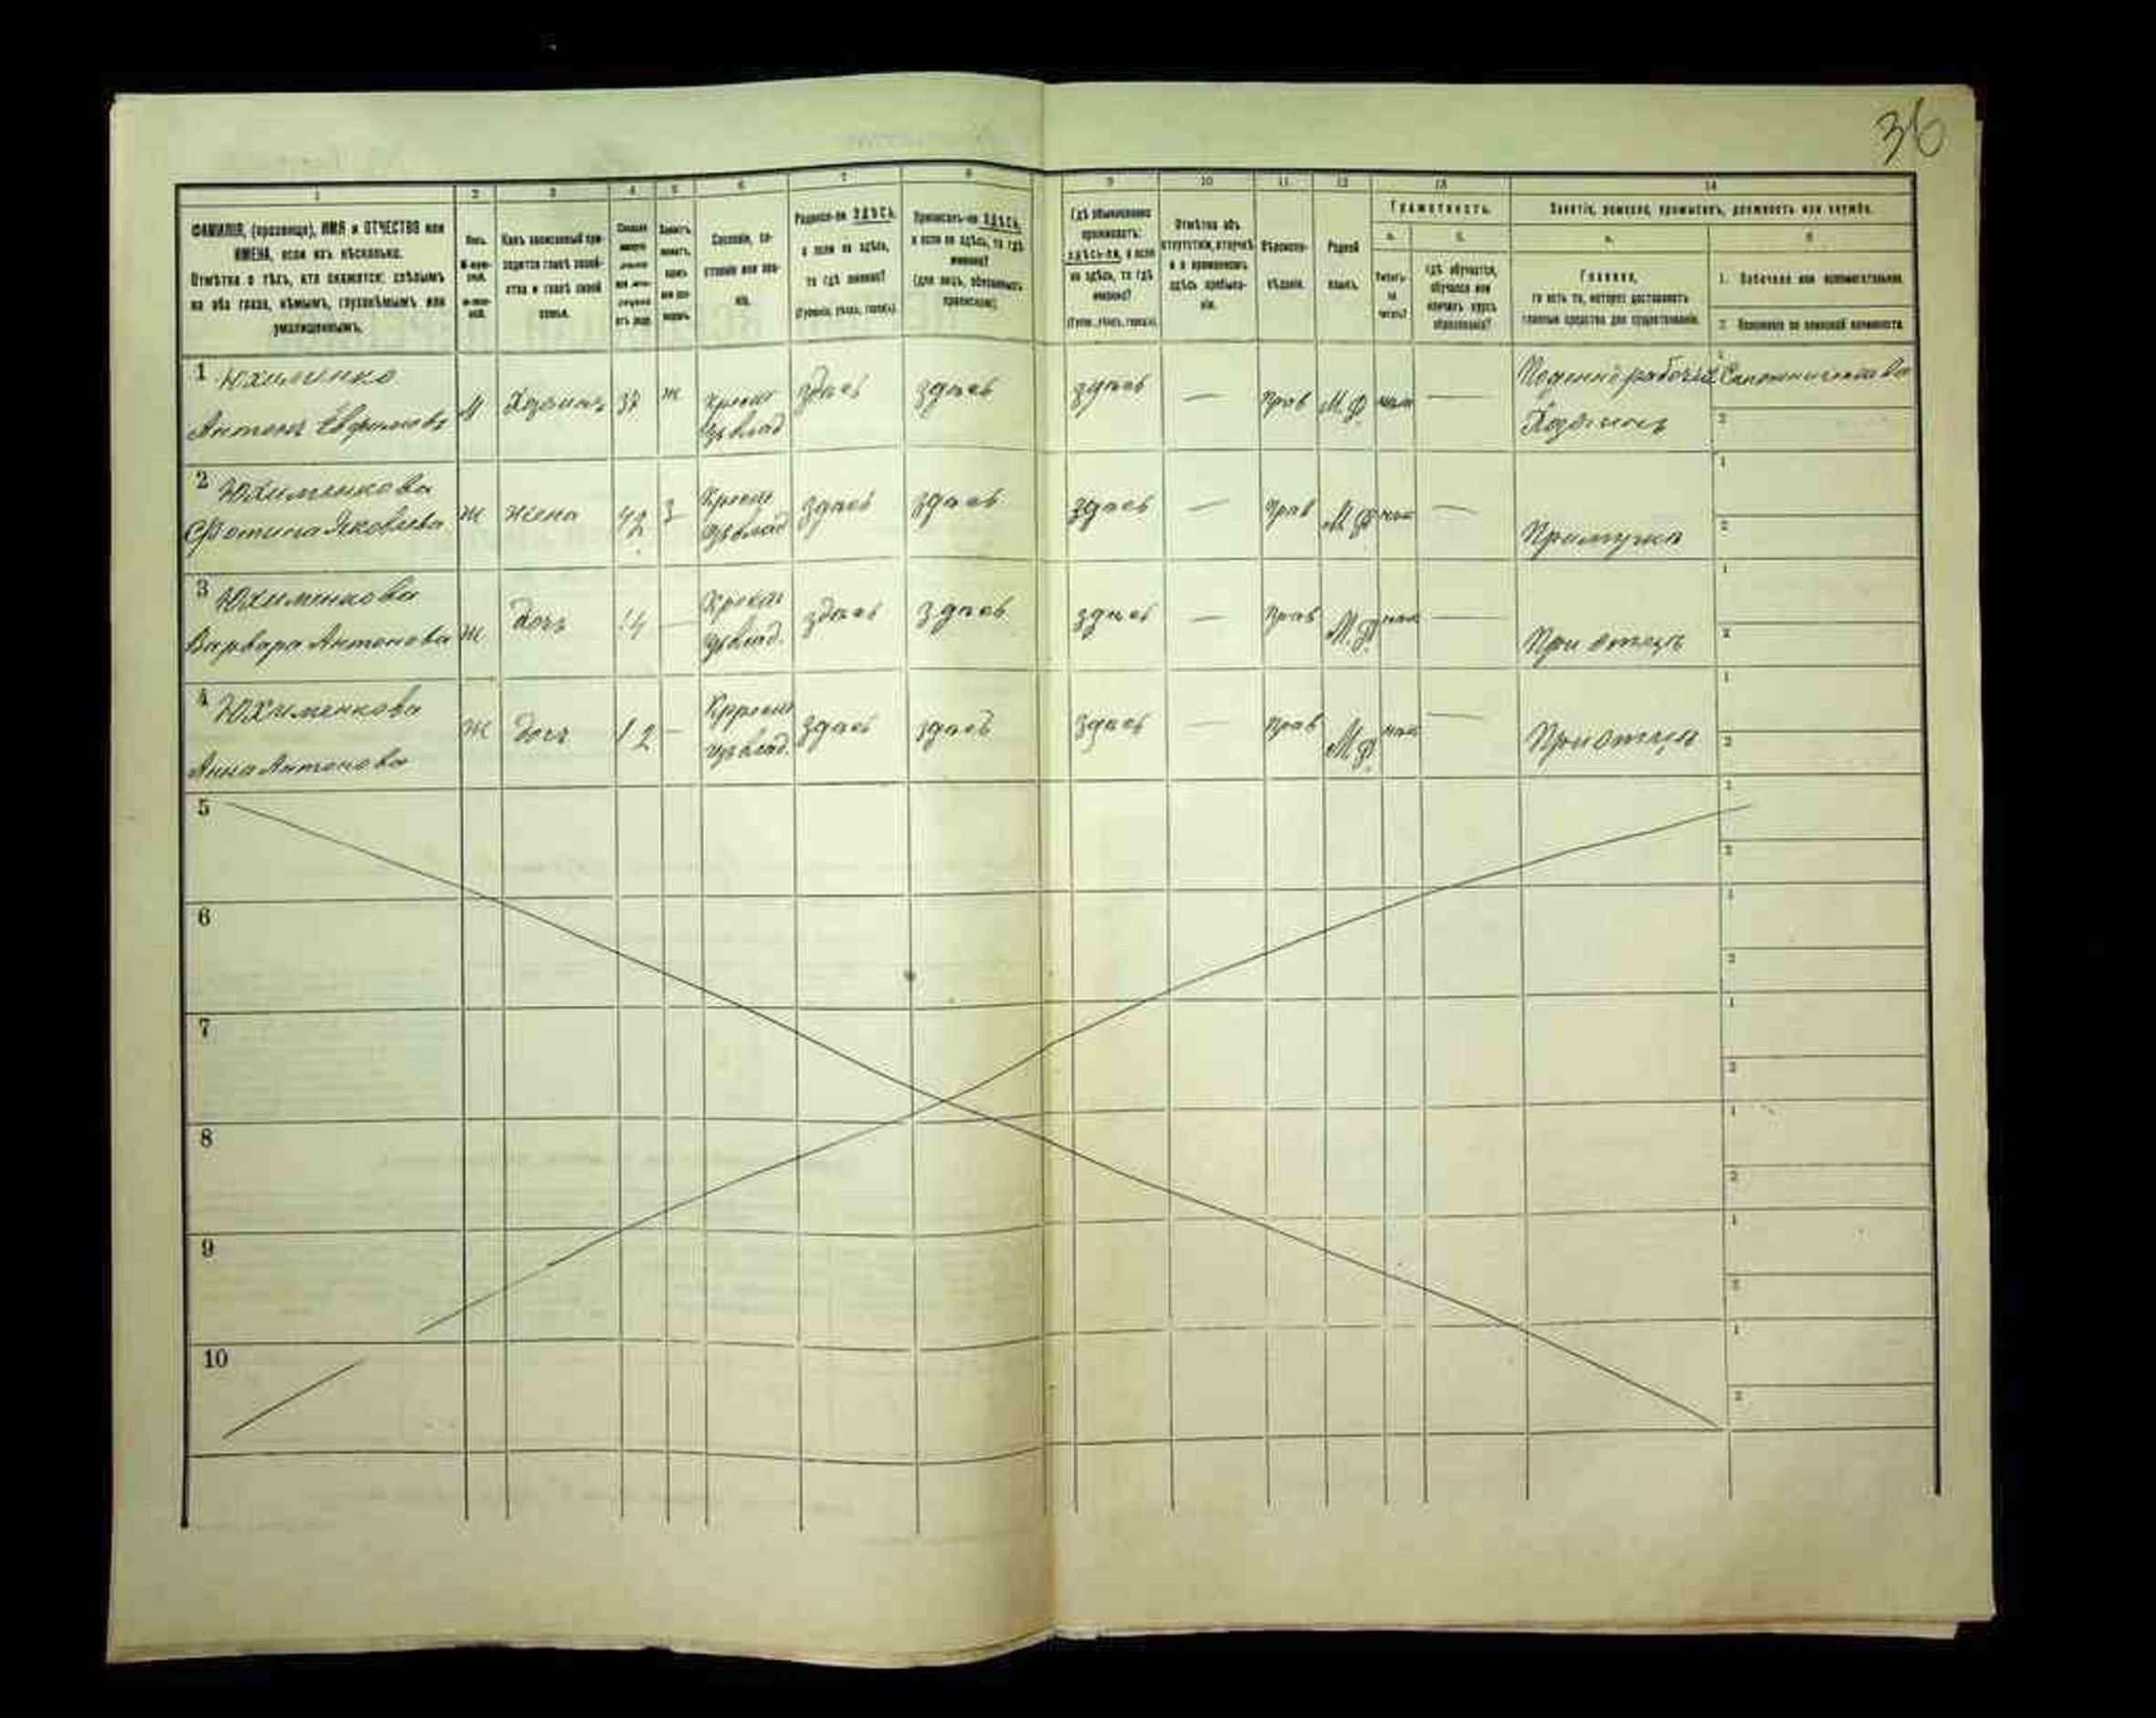 36
1 2 3 4 5 6 7 8 9 10 11 12 13 14
ФАМИЛІЯ, (прозвище), ИМЯ и ОТЧЕСТВО или
ИМЕНА, если ихъ нѣсколько.
Отмѣтка о тѣхъ, кто окажется: слѣпымъ
на оба глаза, нѣмымъ, глухонѣмымъ или
умалишеннымъ.
Полъ.
Какъ записанный при-
ходится главѣ хозяй-
ства и главѣ своей
семьи.
Сословіе, со-
стояніе или зва-
ніе.
Родился-ли ЗДѢСЬ,
а если не здѣсь,
то гдѣ именно?
(Губернія, уѣздъ, городъ).
Приписанъ-ли ЗДѢСЬ,
а если не здѣсь, то гдѣ
именно?
(для лицъ, обязанныхъ
припискою).
Гдѣ обыкновенно
проживаетъ:
здѣсь-ли, а если
не здѣсь, то гдѣ
именно?
(Губ., уѣздъ, городъ).
Отмѣтка объ
отсутствіи, отлучкѣ
и о временномъ
здѣсь пребыва-
ніи.
Вѣроиспо-
вѣданіе.
Родной
языкъ.
Грамотность.
а.
Умѣетъ-
ли
читать?
б.
гдѣ обучается,
обучался или
кончилъ курсъ
образованія?
Занятіе, ремесло, промыселъ, должность или служба.
а.
Главное,
то есть то, которое доставляетъ
главныя средства для существованія.
б.
1. Побочное или вспомогательное.
2. Положеніе по воинской повинности.
1 Юхименко
Антонъ Евфимовъ
М Хозяинъ 37 ж Крест
изъ влад здѣсь здѣсь здѣсь — прав М.Р. —
Хозяинъ
2 Юхименкова
Фотина Яковлева
Ж жена 42 З Крест
изъ влад здѣсь здѣсь здѣсь — прав М.Р. —
При мужѣ
3 Юхименкова
Варвара Антонова
Ж дочь 14 — Крест
изъ влад. здѣсь здѣсь здѣсь — прав М.Р. —
При отцѣ
4 Юхименкова
Анна Антонова
Ж дочь 12 — Крест
изъ влад. здѣсь здѣсь здѣсь — прав М.Р. —
При отцѣ
5
6
7
8
9
10